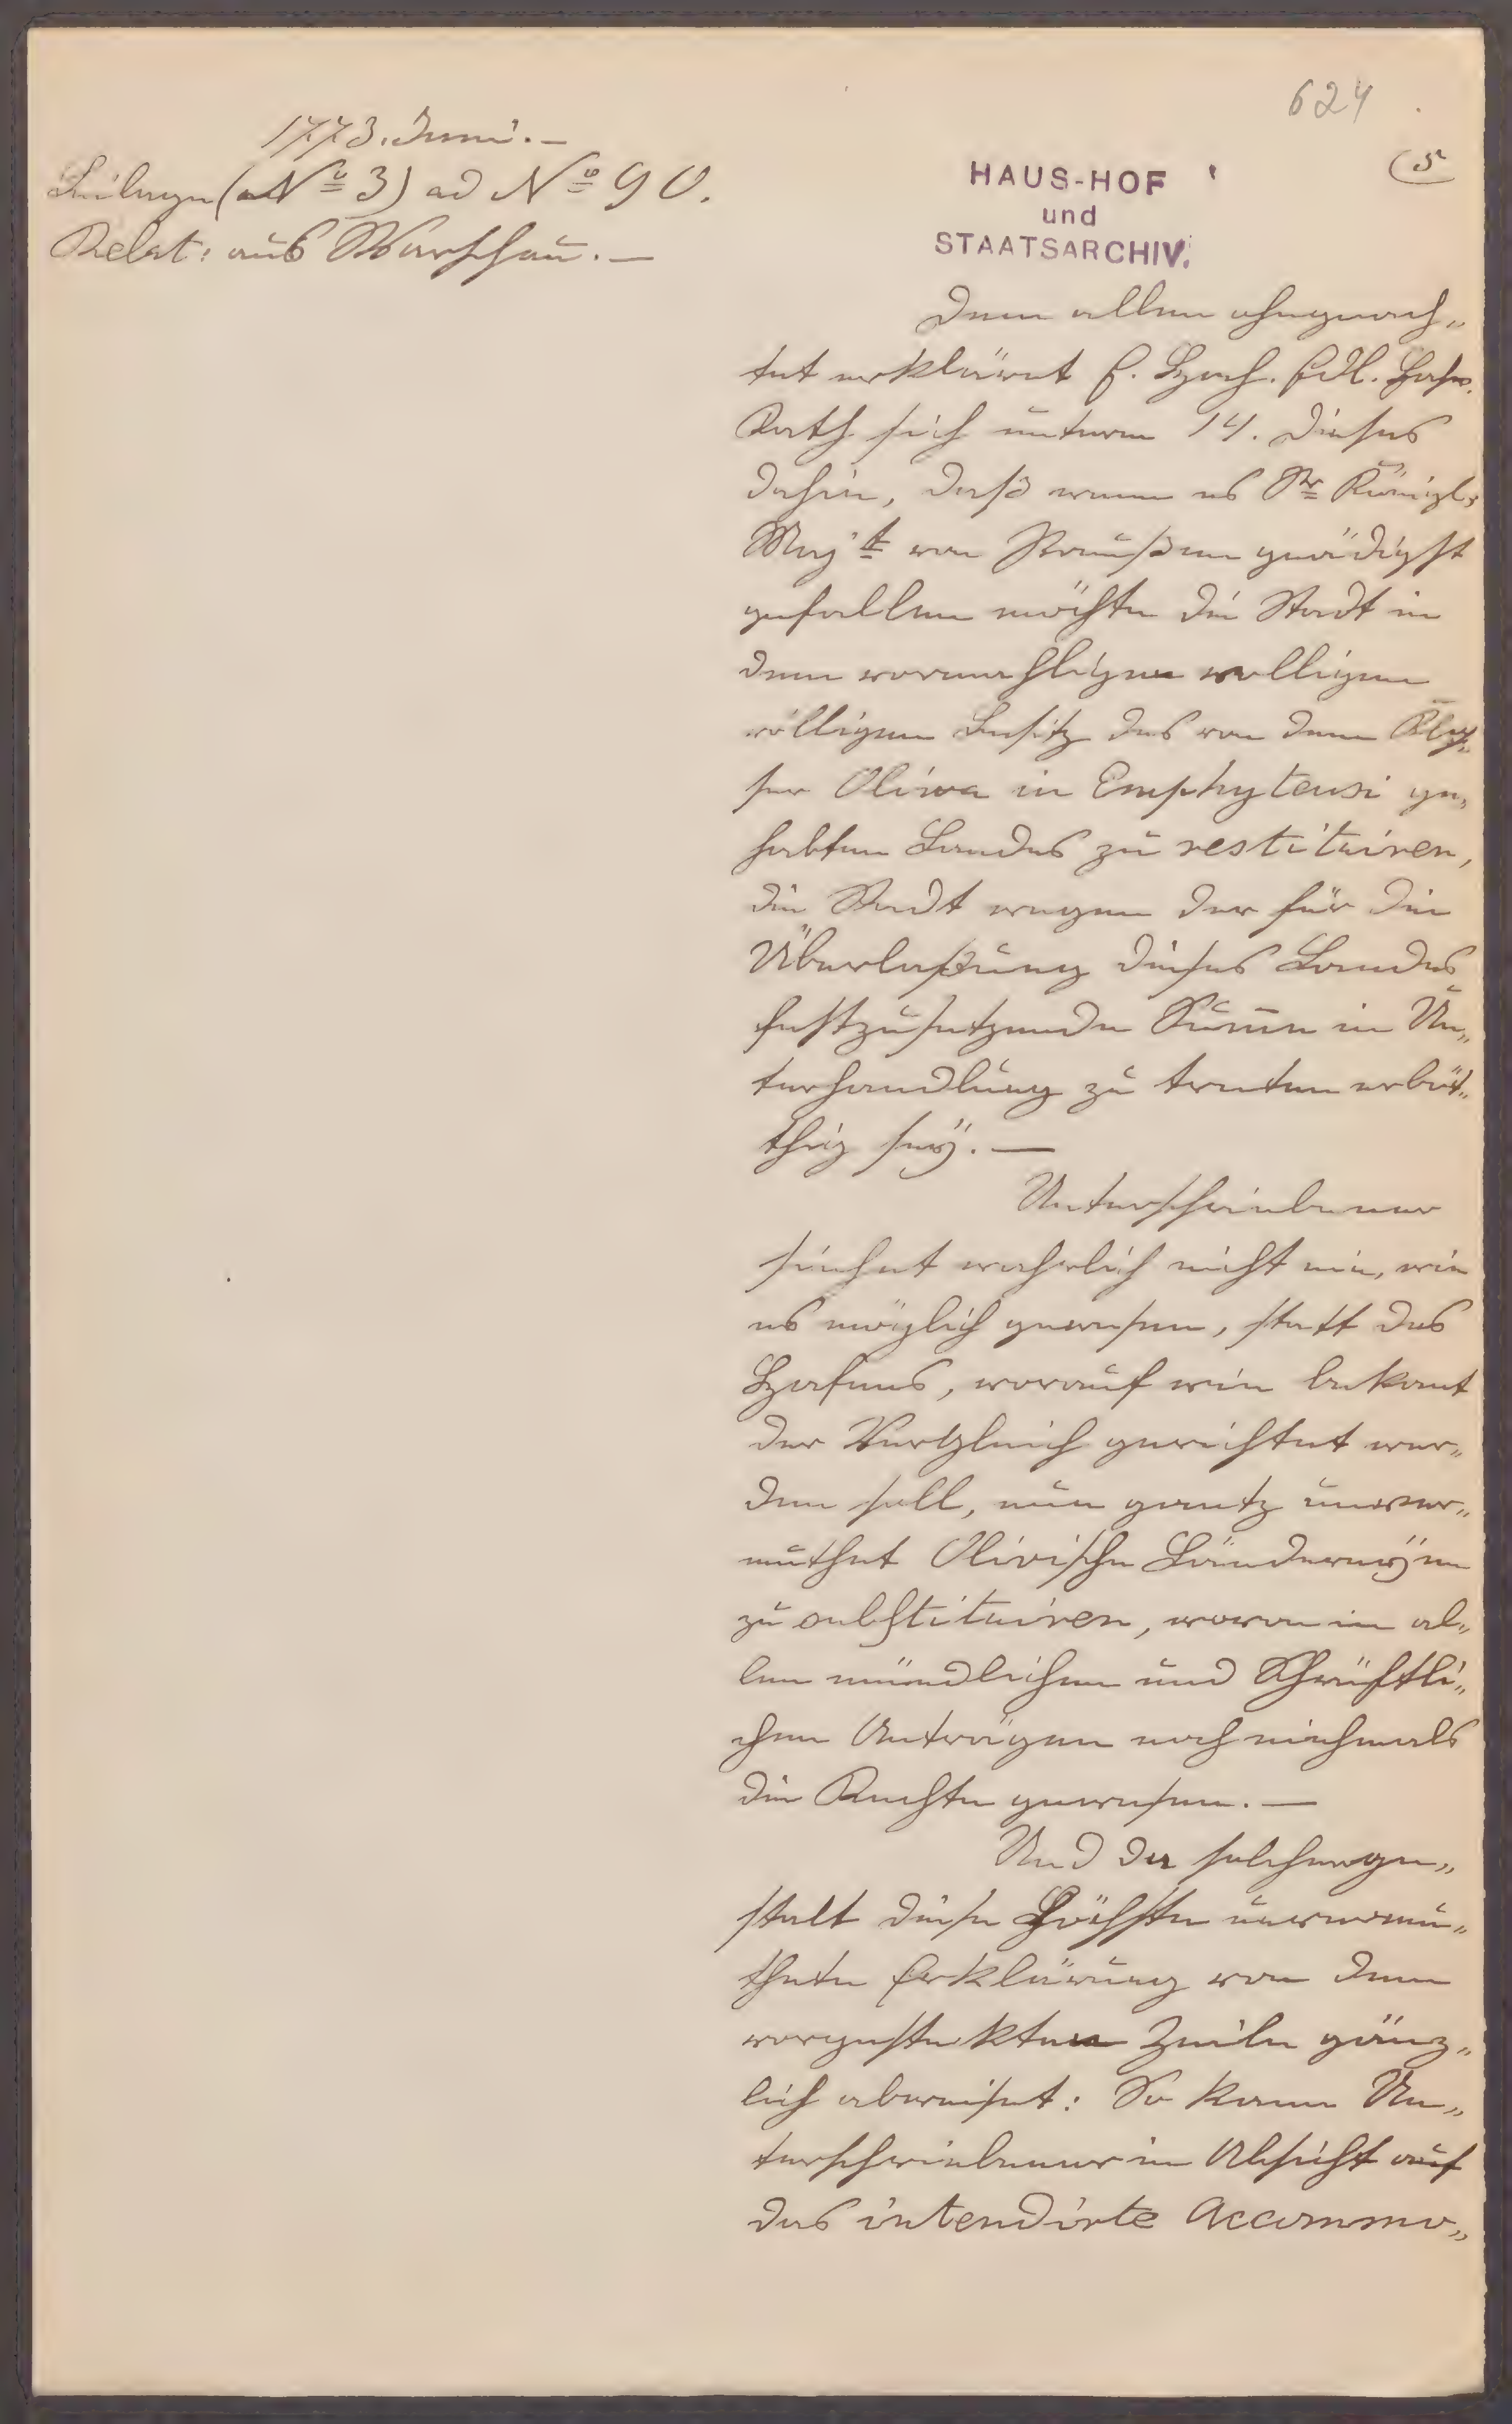 624
1773. Juni. —
Beilage (a Nº 3) ad Nº 90.
Relat: aus Warschau. —
HAUS-HOF
und
STAATSARCHIV.
(5
Dem allen ohngeach„
tet erkläret E. Hoch. Edl. Hoch.
Rath sich unterm 14. dieses
dahin, daß wenn es Sr Königl.
Maj't von Preußen gnädigst
gefallen möchte die Stadt in
dem vormahligen volligen
völligen Besitz des von dem Klo„
ster Oliva in Emphyteusi ge„
habten Landes zu restituiren,
die Stadt wegen der für die
Überlaßung dieses Landes
festzusetzende Sum̄e in Un„
terhandlung zu treten erböt„
thig seÿ. —
Unterschriebener
siehet wahrlich nicht ein, wie
es möglich gewesen, statt des
Hafens, worauf wie bekant
der Vergleich gerichtet wer„
den soll, nun gantz unver„
muthet Olivische Ländereÿen
zu substituiren, wovon in al„
len mündlichen und Schrüftli„
chen Anträgen noch niehmals
die Rechte gewesen. —
Und da solcherge„
stalt diese Höchste unvermu„
thete Erklärung von dem
vorgestekten Ziele gänz„
lich abweiset: So kann Un„
terschriebener in Absicht auf
das intendirte Accommo„